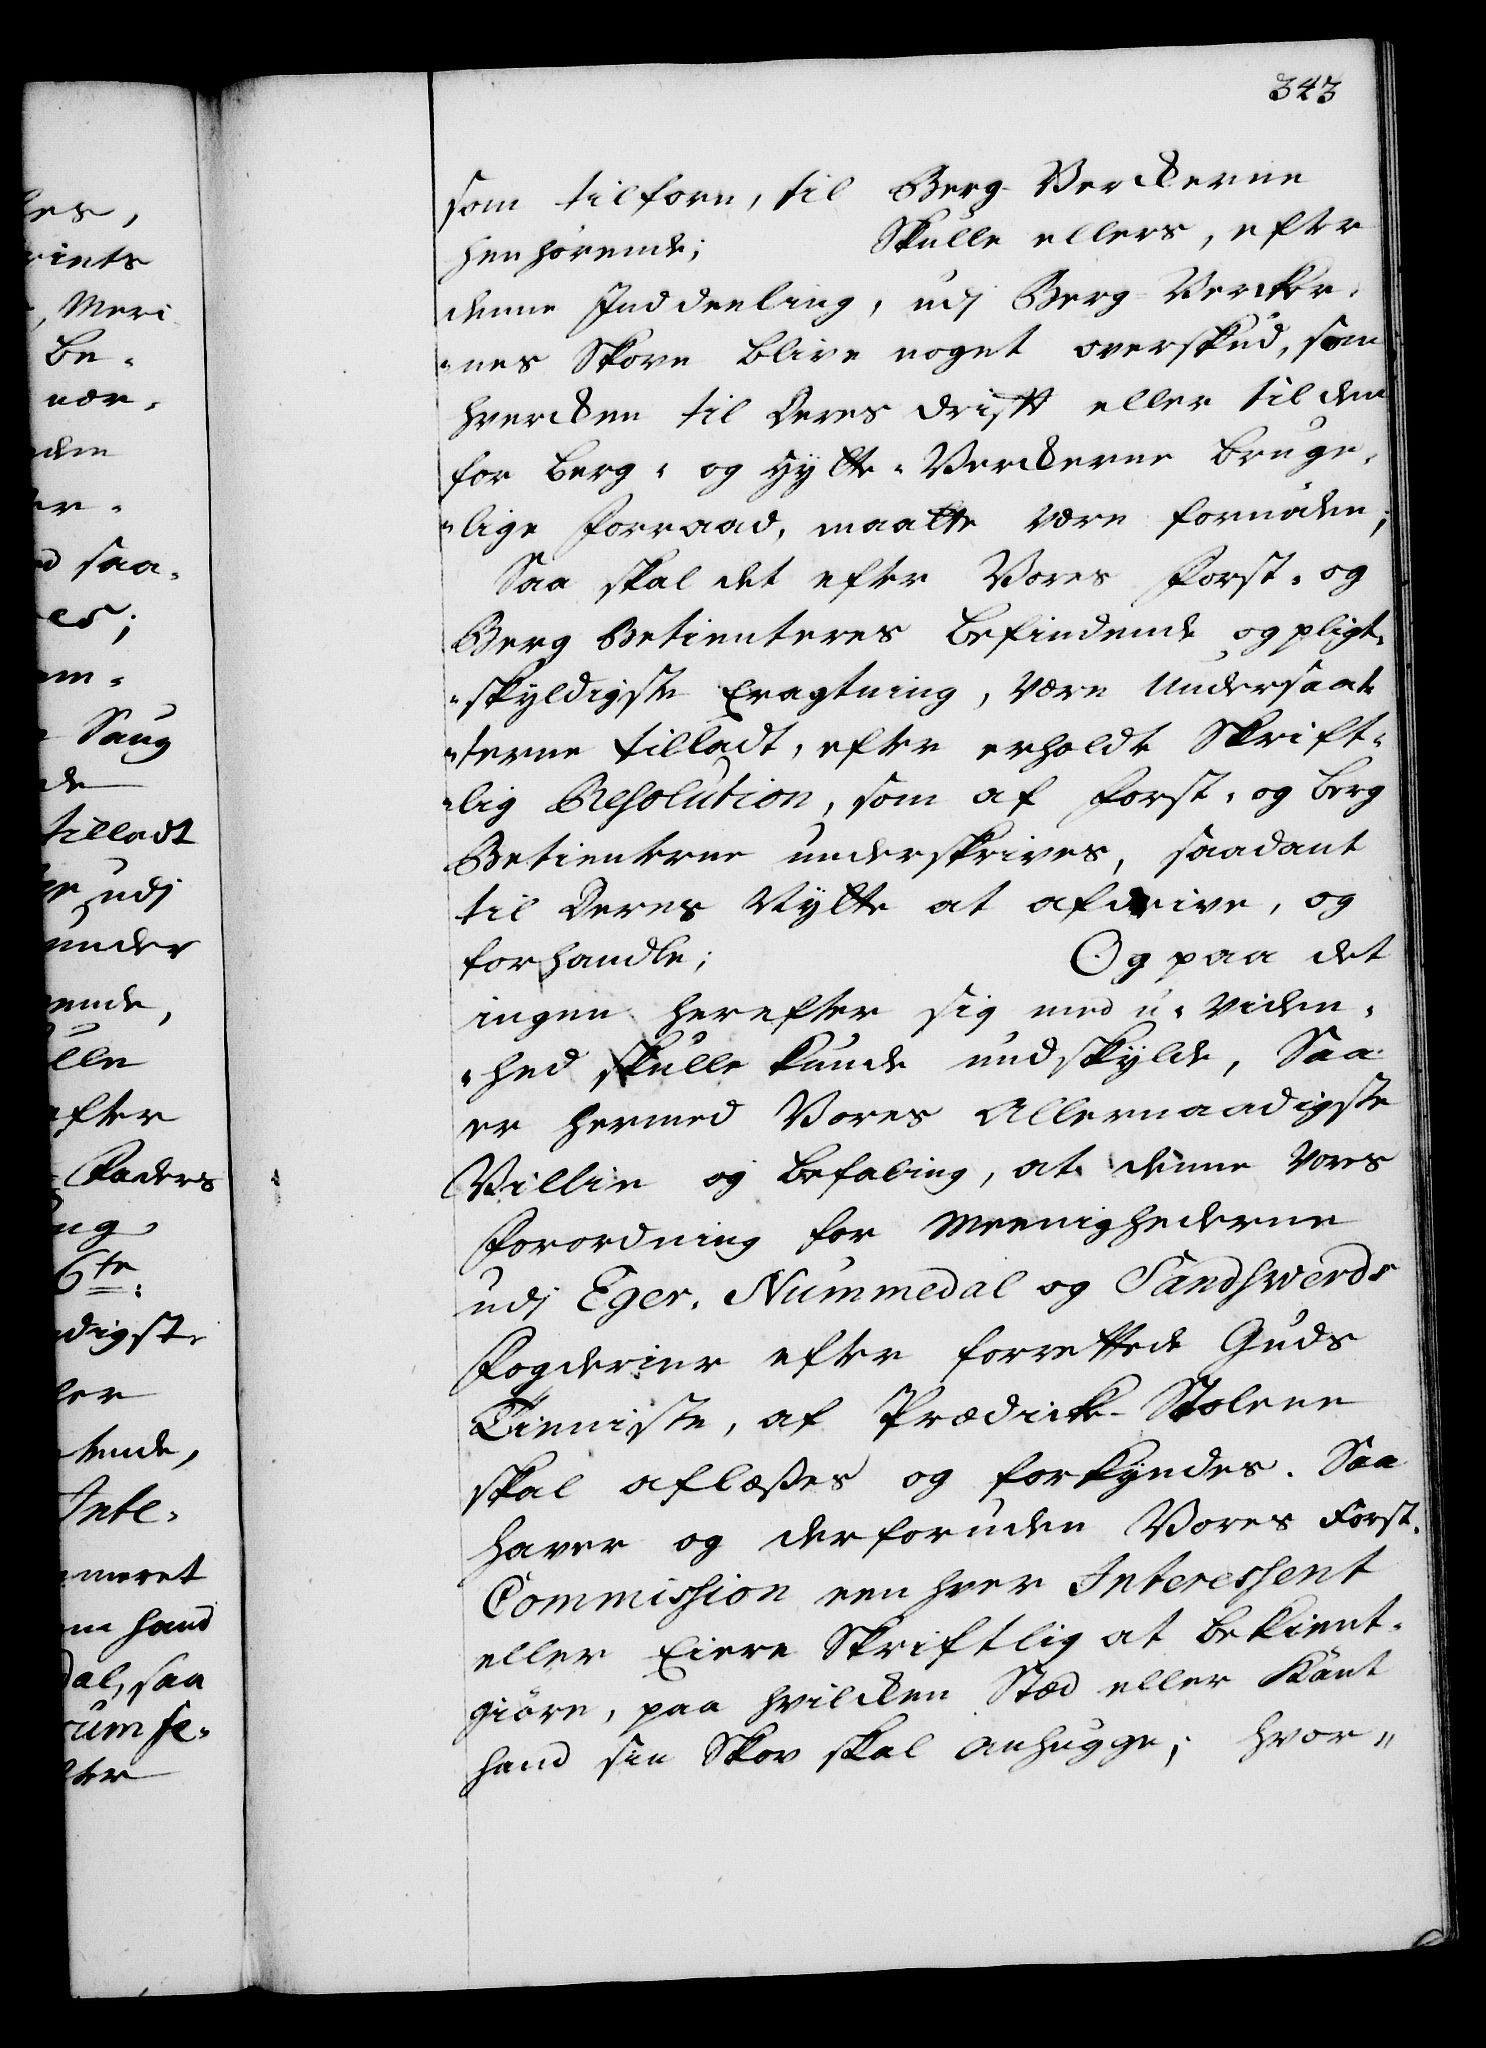 343
som tilforn, til Berg-Verckerne
henhörende; Skulle ellers, efter
denne Inddeeling, udj Berg-Vercker-
-nes Skove blive noget overskud, som
hvercken til Deres drift eller til den
for Berg- og Hytte-Verckerne bruge-
-lige Forraad, maatte være fornöden;
Saa skal det efter Vores Forst- og
Berg Betienteres befindende og pligt-
-skyldigste Eragtning, være Undersaat-
-terne tilladt, efter erholdte Skrift-
-lig Resolution, som af Forst- og Berg
Betienterne underskrives, saadant
til Deres Nytte at afdrive, og
forhandle; Og paa det
ingen herefter sig med u-viden-
-hed skulle kunde undskylde, Saa
er hermed Vores Allernaadigste
Villie og befaling, at denne Vores
Forordning for Meenighederne
udj Eger, Nummedal og Sandsverds
Fogderier efter forrettede Guds
Tieniste, af Prædicke-Stolene
skal aflæses og forkyndes. Saa
haver og derforuden Vores Forst-
Commission een hver Interessent
eller Eiere Skriftlig at bekient-
giöre, paa hvilcken Stæd eller Kant
hand sin Skov skal anhugge; hvor-
les,
rints
, Meri
be-
nær-
eden
er-
d saa-
es;
em-
Saug
de
tilladt
er udj
under
ende,
ulle
efter
Faders
ng
6te
digste
ler
tende,
Inte-
meret
m hand
dal, saa
rum se-
ter